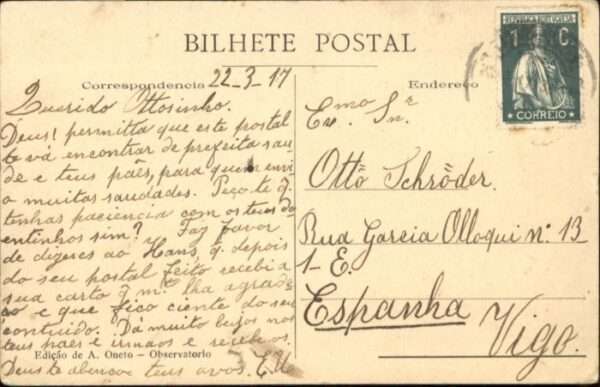 BILHETE POSTAL
Correspondencia 22-3-17
Querido Ottosinho.
Deus! permitta que este postal
te vá encontrar de prefeita sau-
de e teus pães, para quem envi-
o muitas saudades. Peço-te q.
tenhas paciencia com os teus do-
entinhos sim? Faz favor
de dizeres ao Hans, q. depois
do seu postal feito recebi a
sua carta q. mto lha agrade-
ço e que fico ciente do seu
contiudo. Dá muito beijos nos
teus paes e irmãos e recebe os.
Deus te abençoe teus avos.
Edição de A. Oneto — Observatorio
Endereço
REPUBLICA PORTUGUESA
1 C.
CORREIO
Exmo Snr
Ottö Schröder.
Rua Garcia Olloqui nº 13
1-E.
Espanha
Vigo.